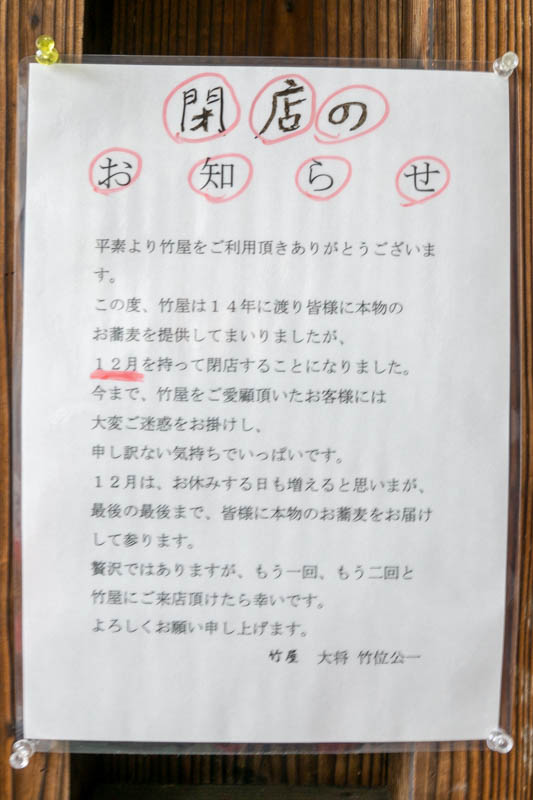 閉店の
お知らせ
平素より竹屋をご利用頂きありがとうございま
す。
この度、竹屋は１４年に渡り皆様に本物の
お蕎麦を提供してまいりましたが、
１２月を持って閉店することになりました。
今まで、竹屋をご愛顧頂いたお客様には
大変ご迷惑をお掛けし、
申し訳ない気持ちでいっぱいです。
１２月は、お休みする日も増えると思いまが、
最後の最後まで、皆様に本物のお蕎麦をお届け
して参ります。
贅沢ではありますが、もう一回、もう二回と
竹屋にご来店頂けたら幸いです。
よろしくお願い申し上げます。
竹屋　大将 竹位公一